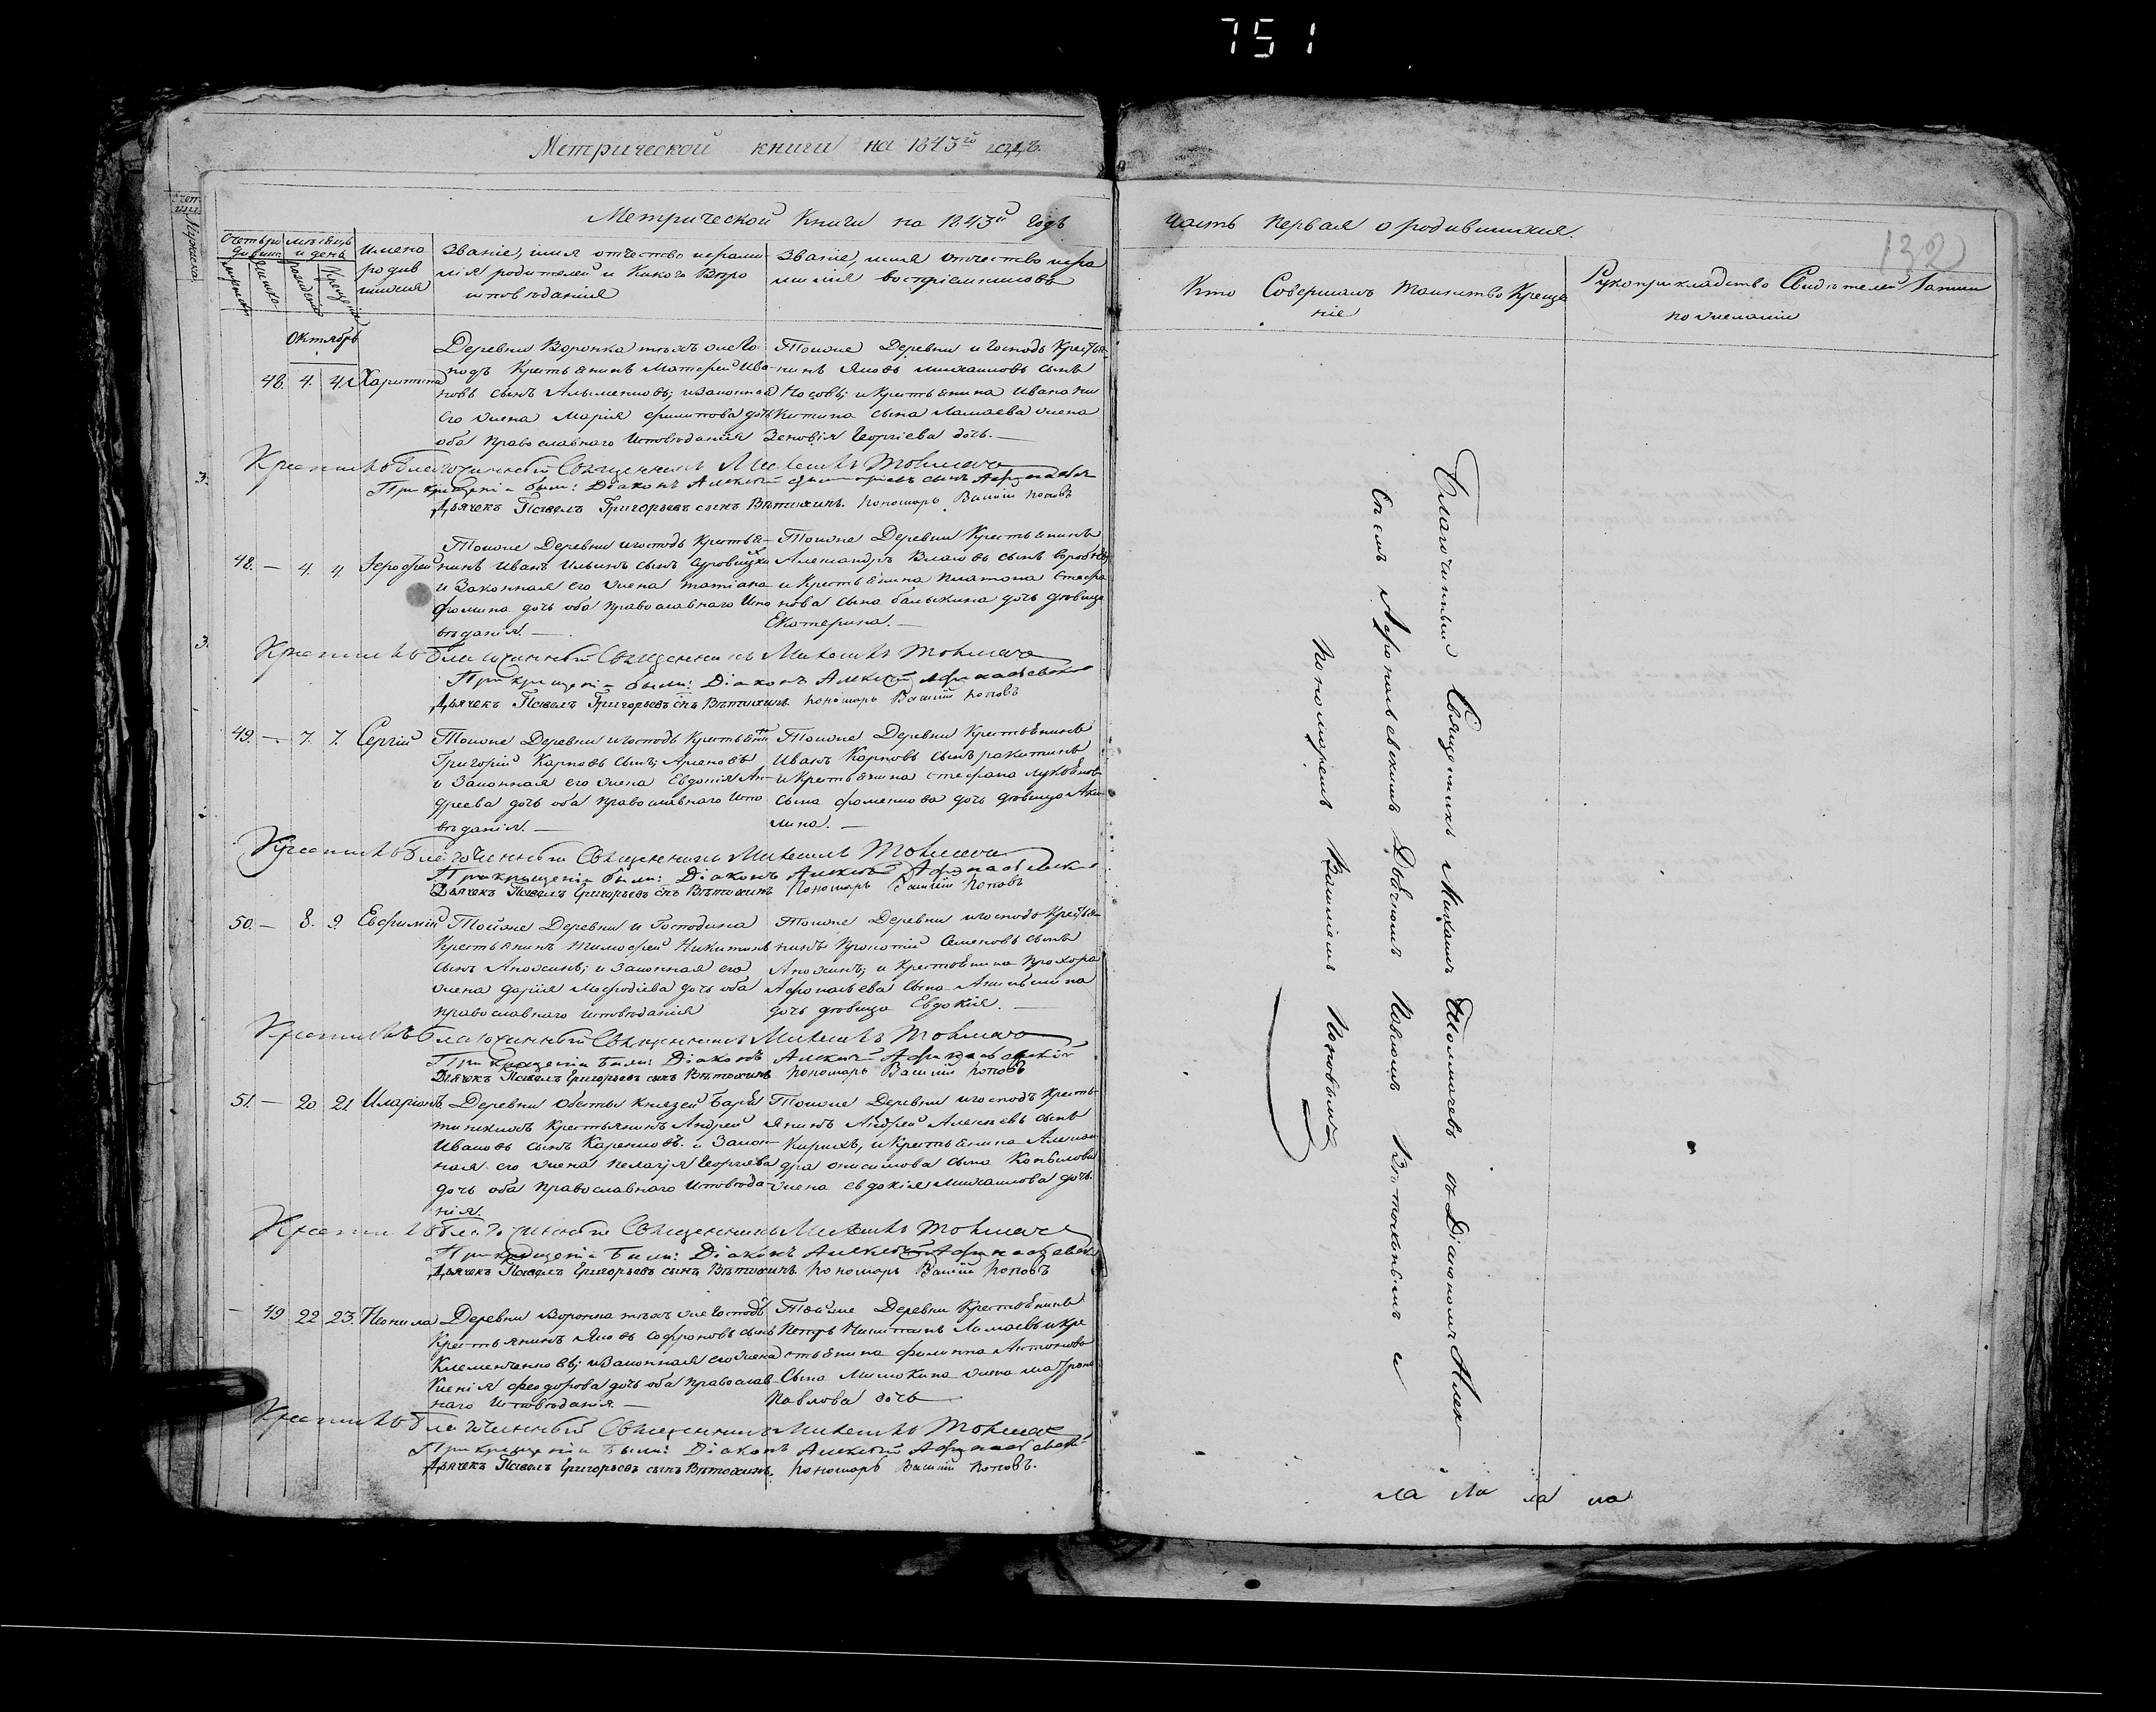 751
Метрической книги на 1843й годъ.
Метрической Книги на 1843й Годъ
часть первая о родившихся.
132
Имена родившихся
Званіе, имя отчество и фамилія родителей и Какого Вѣроисповѣданія
Званіе, имя отчество и фамилія воспріемниковъ
Кто Совершалъ Таинство Крещеніе
Рукоприкладство Свидѣтелей Записи по желанію
Октябрь
48. 4. 4. Харитина
Деревни Воронка тѣхъ же Гос
подъ Крестьянинъ Матфей Ива
новъ сынъ; и Законная
его жена Марія Филипова дочь
оба православнаго Исповѣданія
Тойже Деревни и Господъ Крестья
нинъ Яковъ Михаиловъ сынъ
Носовъ; и крестьянина Ивана Ни
китина сына Ламаева жена
Зеновія Георгіева дочь.
Крестилъ благочинный Священникъ Михаилъ Толмачевъ
При крещеніи были: Діаконъ Алексѣй
Дьячекъ Павелъ Григорьевъ сынъ Вѣтохинъ. Пономарь Василій Поповъ
48. — 4. 4 Іерофей
Тойже Деревни и господъ Крестья
нинъ Иванъ Ильинъ сынъ
и Законная его жена Татіана
Фомина дочь оба православнаго Испо
вѣданія.
Тойже Деревни Крестьянинъ
Александръ Власовъ сынъ
и Крестьянина Платона Стефа
нова сына Балыкина дочь дѣвица
Екатерина.
Крестилъ благочинный Священникъ Михаилъ Толмачевъ
При крещеніи были: Діаконъ Алексѣй Афанасьевскій
Дьячекъ Павелъ Григорьевъ снъ Вѣтохинъ. Пономарь Василій Поповъ
49. — 7. 7. Сергій
Тойже Деревни и господъ Крестьянинъ
Григорій Карповъ сынъ;
и Законная его жена Евдокія Ан
дреева дочь оба православнаго Испо
вѣданія.
Тойже Деревни Крестьянинъ
Иванъ Карповъ сынъ Ракитинъ
и Крестьянина Стефана Лукьянов
сына Фоменкова дочь дѣвица Аки
лина.
Крестилъ благочинный Священникъ Михаилъ Толмачевъ
При крещеніи были: Діаконъ Алексѣй
Дьячекъ Павелъ Григорьевъ снъ Вѣтохинъ Пономарь Василій Поповъ
50. — 8. 9. Евфимій
Тойже Деревни и Господина
Крестьянинъ Тимофей Никитинъ
сынъ Анохинъ; и Законная его
жена Дарія Мефодіева дочь оба
православнаго исповѣданія
Тойже Деревни и господъ Крестья
нинъ Прокопій Семеновъ сынъ
Анохинъ; и Крестьянина Прохора
Афонасьева сына
дочь дѣвица Евдокія.
Крестилъ благочинный Священникъ Михаилъ Толмачевъ
При крещеніи были: Діаконъ Алексѣй Афанасьевскій
Дьячекъ Павелъ Григорьевъ сынъ Вѣтохинъ Пономарь Василій Поповъ
51. — 20 21 Иларіонъ
Деревни Обесты Князей Баря
тинскихъ Крестьянинъ Андрей
Ивановъ сынъ и Закон
ная его жена Пелагія Георгіева
дочь оба православнаго Исповѣда
нія.
Тойже Деревни и господъ Кресть
янинъ Андрей Алексѣевъ сынъ
и Крестьянина Алексан
дра Онисимова сына
жена Евдокія Михаилова дочь.
Крестилъ благочинный Священникъ Михаилъ Толмачевъ
При крещеніи были: Діаконъ Алексѣй
Дьячекъ Павелъ Григорьевъ сынъ Вѣтохинъ Пономарь Василій Поповъ
— 49 22 23. Нонила
Деревни Воронка тѣхъ же Господъ
Крестьянинъ Яковъ Софроновъ сынъ
и Законная его жена
Ксенія Феодорова дочь оба православ
наго Исповѣданія.
Тойже Деревни Крестьянинъ
Петръ Никитинъ Ламаевъ и кре
стьянина Филиппа Антонова
Сына жена Матрона
Павлова дочь
Крестилъ благочинный Священникъ Михаилъ Толмачевъ
При крещеніи были: Діаконъ Алексѣй
Дьячекъ Павелъ Григорьевъ сынъ Вѣтохинъ. Пономарь Василій Поповъ.
Благочинный Священникъ Михаилъ Толмачевъ съ Діакономъ Алек
сѣемъ Афонасьевскимъ Дьячкомъ Павломъ Вѣтохинымъ и
Пономаремъ Василіемъ Поповымъ
ла ла ла на